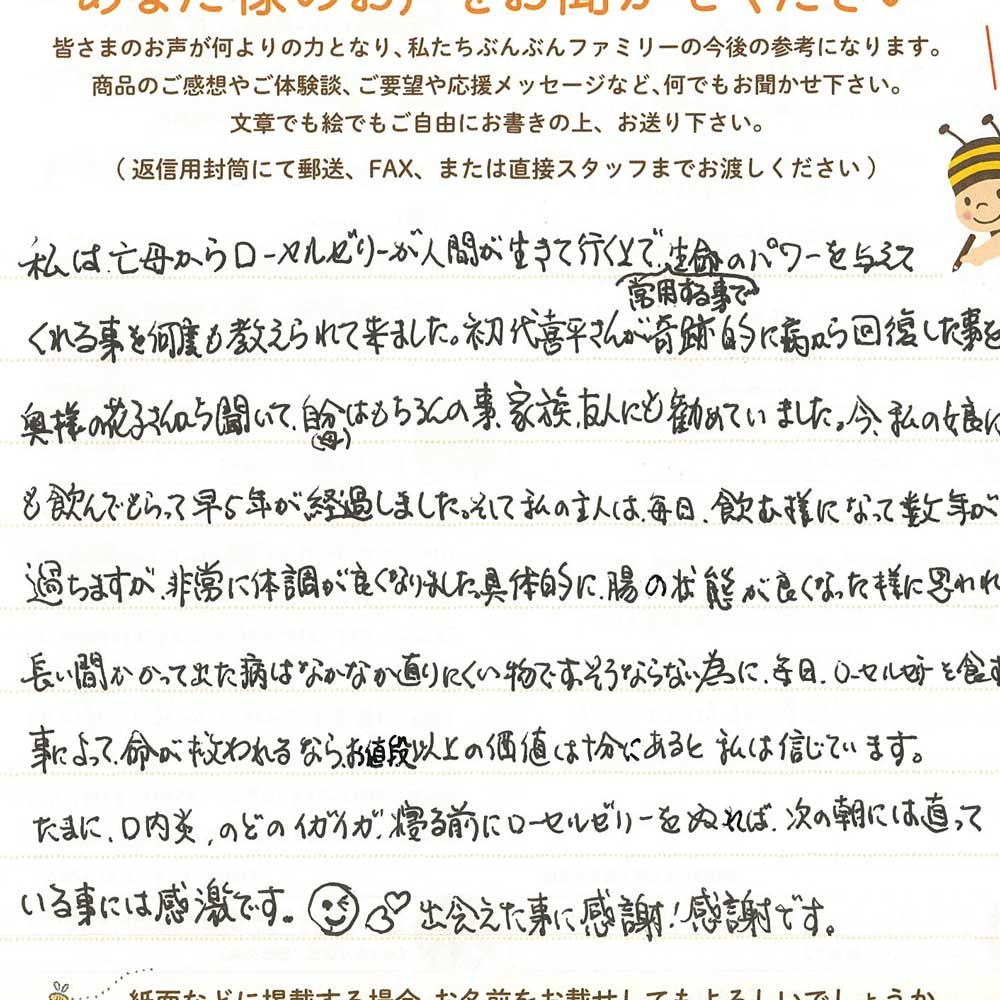 あなた様のお声をお聞かせください
皆さまのお声が何よりの力となり、私たちぶんぶんファミリーの今後の参考になります。
商品のご感想やご体験談、ご要望や応援メッセージなど、何でもお聞かせ下さい。
文章でも絵でもご自由にお書きの上、お送り下さい。
（返信用封筒にて郵送、FAX、または直接スタッフまでお渡しください）
私は、亡母からローヤルゼリーが人間が生きて行く上で、生命のパワーを与えて
常用する事で
くれる事を何度も教えられて来ました。初代喜平さんが奇跡的に病から回復した事を
奥様の花子さんから聞いて、自分はもちろんの事、家族、友人にも勧めていました。今、私の娘に
(母)
も飲んでもらって早5年が経過しました。そして私の主人は、毎日、飲む様になって数年が
過ちますが、非常に体調が良くなりました。具体的に、腸の状態が良くなった様に思われ
長い間かかって出た病はなかなか直りにくい物です。そうならない為に、毎日、ローヤルゼリーを食す
事によって、命が救われるなら、お値段以上の価値は十分にあると私は信じています。
たまに、口内炎、のどのイガイガ、寝る前にローヤルゼリーをぬれば、次の朝には直って
いる事には感激です。出会えた事に感謝！感謝です。
紙面などに掲載する場合、お名前をお載せしてもよろしいでしょうか